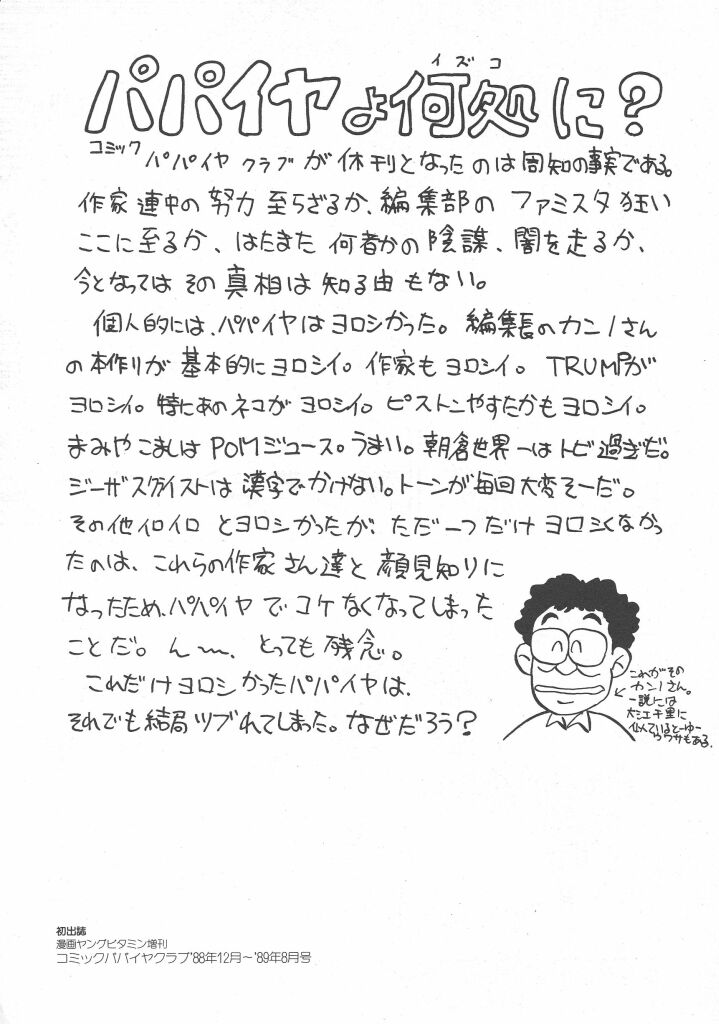 イズコ
パパイヤよ何処に?
コミックパパイヤクラブが休刊となったのは周知の事実である。
作家連中の努力至らざるか、編集部のファミスタ狂い
ここに至るか、はたまた何者かの陰謀、闇を走るか、
今となってはその真相は知る由もない。
個人的には、パパイヤはヨロシかった。編集長のカンノさん
の本作りが基本的にヨロシイ。作家もヨロシイ。TRUMPが
ヨロシイ。特にあのネコがヨロシイ。ピストンやすたかもヨロシイ。
まみやこましはPOMジュース。うまい。朝倉世界一はトビ過ぎだ。
ジーザスグイストは漢字でかけない。トーンが毎回大変そーだ。
その他イロイロとヨロシかったが、ただ一つだけヨロシくなかっ
たのは、これらの作家さん達と顔見知りに
なったため、パパイヤでコケなくなってしまった
ことだ。ん〜、とっても残念。
これだけヨロシかったパパイヤは、
それでも結局ツブれてしまった。なぜだろう?
これがその
カンノさん。
一説には
大江千里に
似ているとーゆー
ウワサもある.
初出誌
漫画ヤングビタミン増刊
コミックパパイヤクラブ'88年12月〜'89年8月号